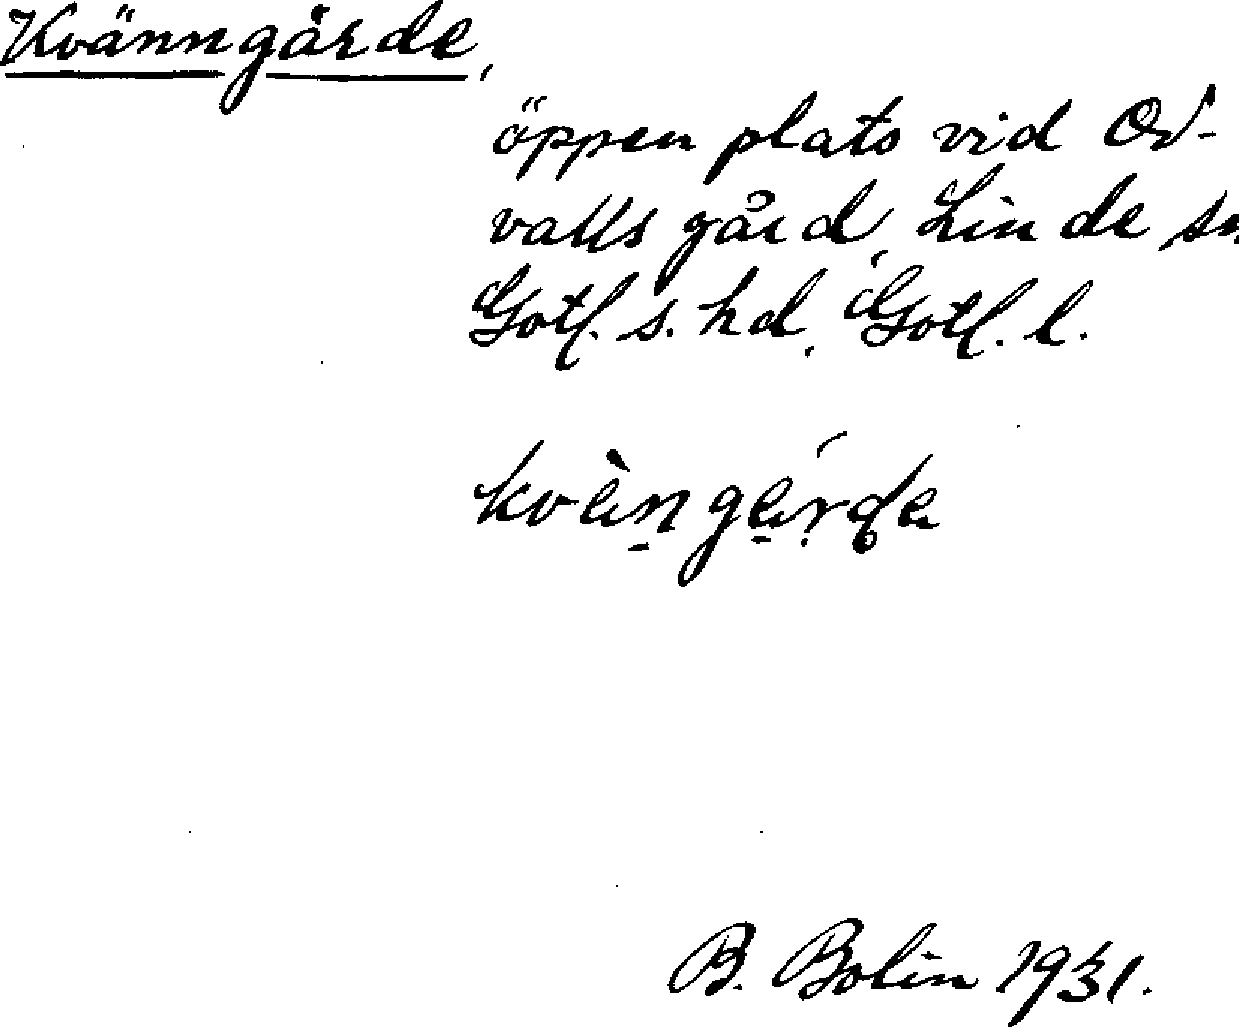 Kvänngärde,
öppen plats vid Od-
valls gård, Linde sn
Gotl. s. hd, Gotl. l.
B. Bolin 1931.